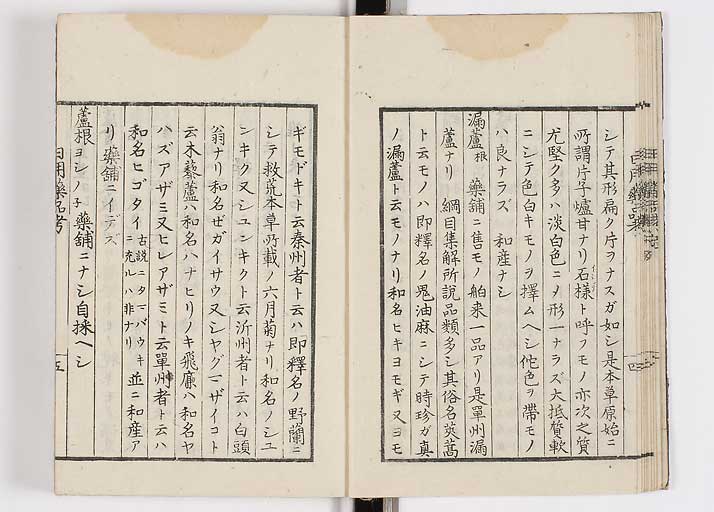 シテ其形扁ク片ヲナスガ如シ是本草原始ニ
所謂片子爐甘ナリ石様ト呼フモノ亦次之質
尤堅ク多ハ淡白色ニメ形一ナラズ大抵質軟
ニシテ色白キモノヲ擇ムヘシ佗色ヲ帶モノ
ハ良ナラズ 和産ナシ
漏蘆根 藥舖ニ售モノ舶来一品アリ是單州漏
蘆ナリ 綱目集解所説品類多シ其俗名莢蒿
ト云モノハ即釋名ノ鬼油麻ニシテ時珍ガ真
ノ漏蘆ト云モノナリ和名ヒキヨモギ又ヨモ
ギモドキト云秦州者ト云ハ即釋名ノ野蘭ニ
シテ救荒本草所載ノ六月菊ナリ和名ノシユ
ンキク又シユンキクト云沂州者ト云ハ白頭
翁ナリ和名ゼガイサウ又シヤグマザイコト
云木藜蘆ハ和名ハナヒリノキ飛廉ハ和名ヤ
ハズアザミ又ヒレアザミト云單州者ト云ハ
和名ヒゴタイ 古説ニタマバウキニ充ルハ非ナリ 並ニ和産ア
リ藥舖ニイデズ
蘆根 ヨシノ子 藥舖ニナシ自採ヘシ
日用藥品考
五